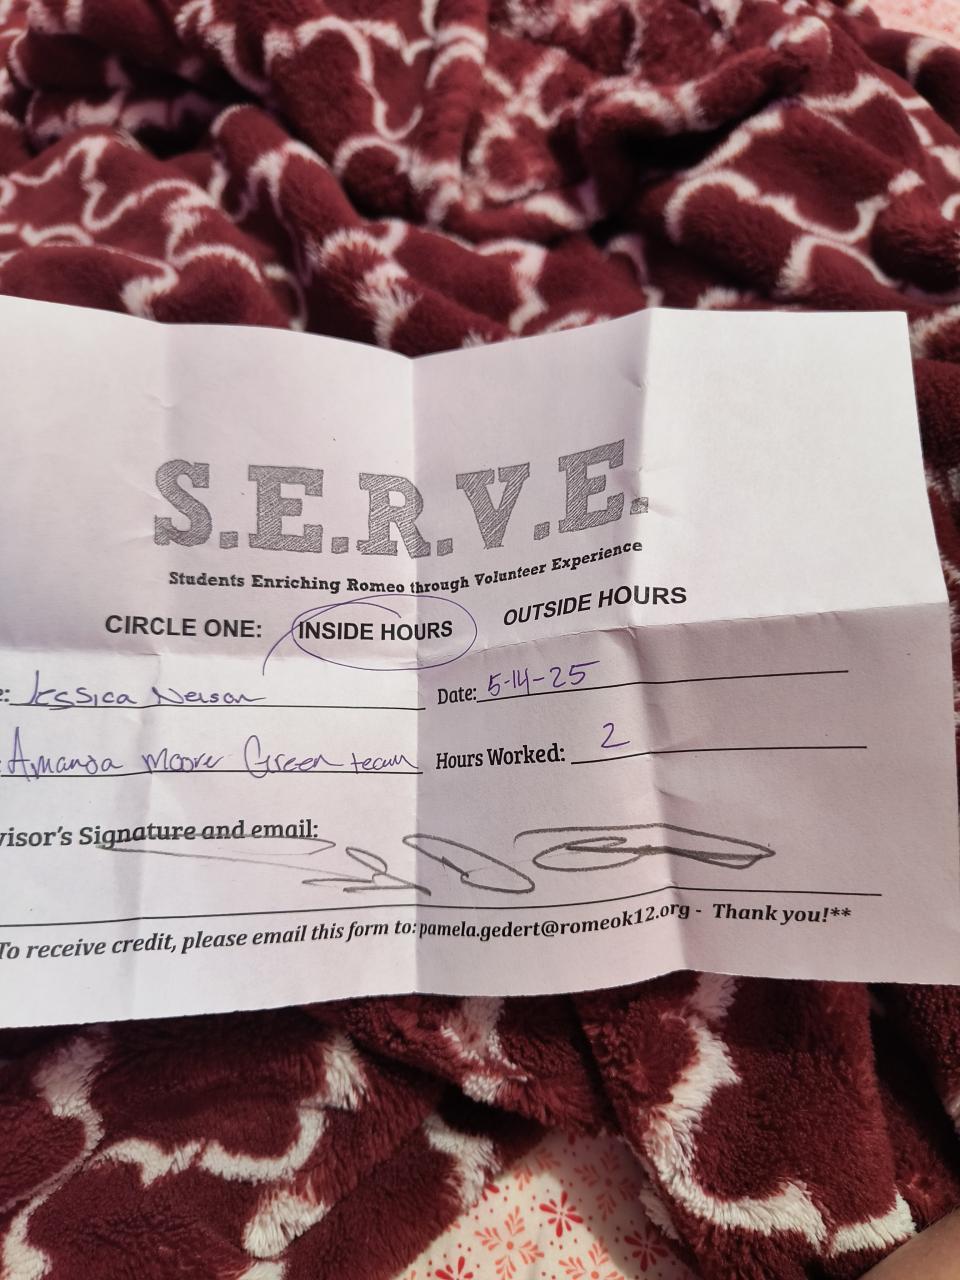 S.E.R.V.E.
Students Enriching Romeo through Volunteer Experience
CIRCLE ONE: INSIDE HOURS OUTSIDE HOURS
e: Jessica Nelson Date: 5-14-25
: Amanda Moore Green team Hours Worked: 2
visor's Signature and email:
To receive credit, please email this form to: pamela.gedert@romeok12.org - Thank you!**